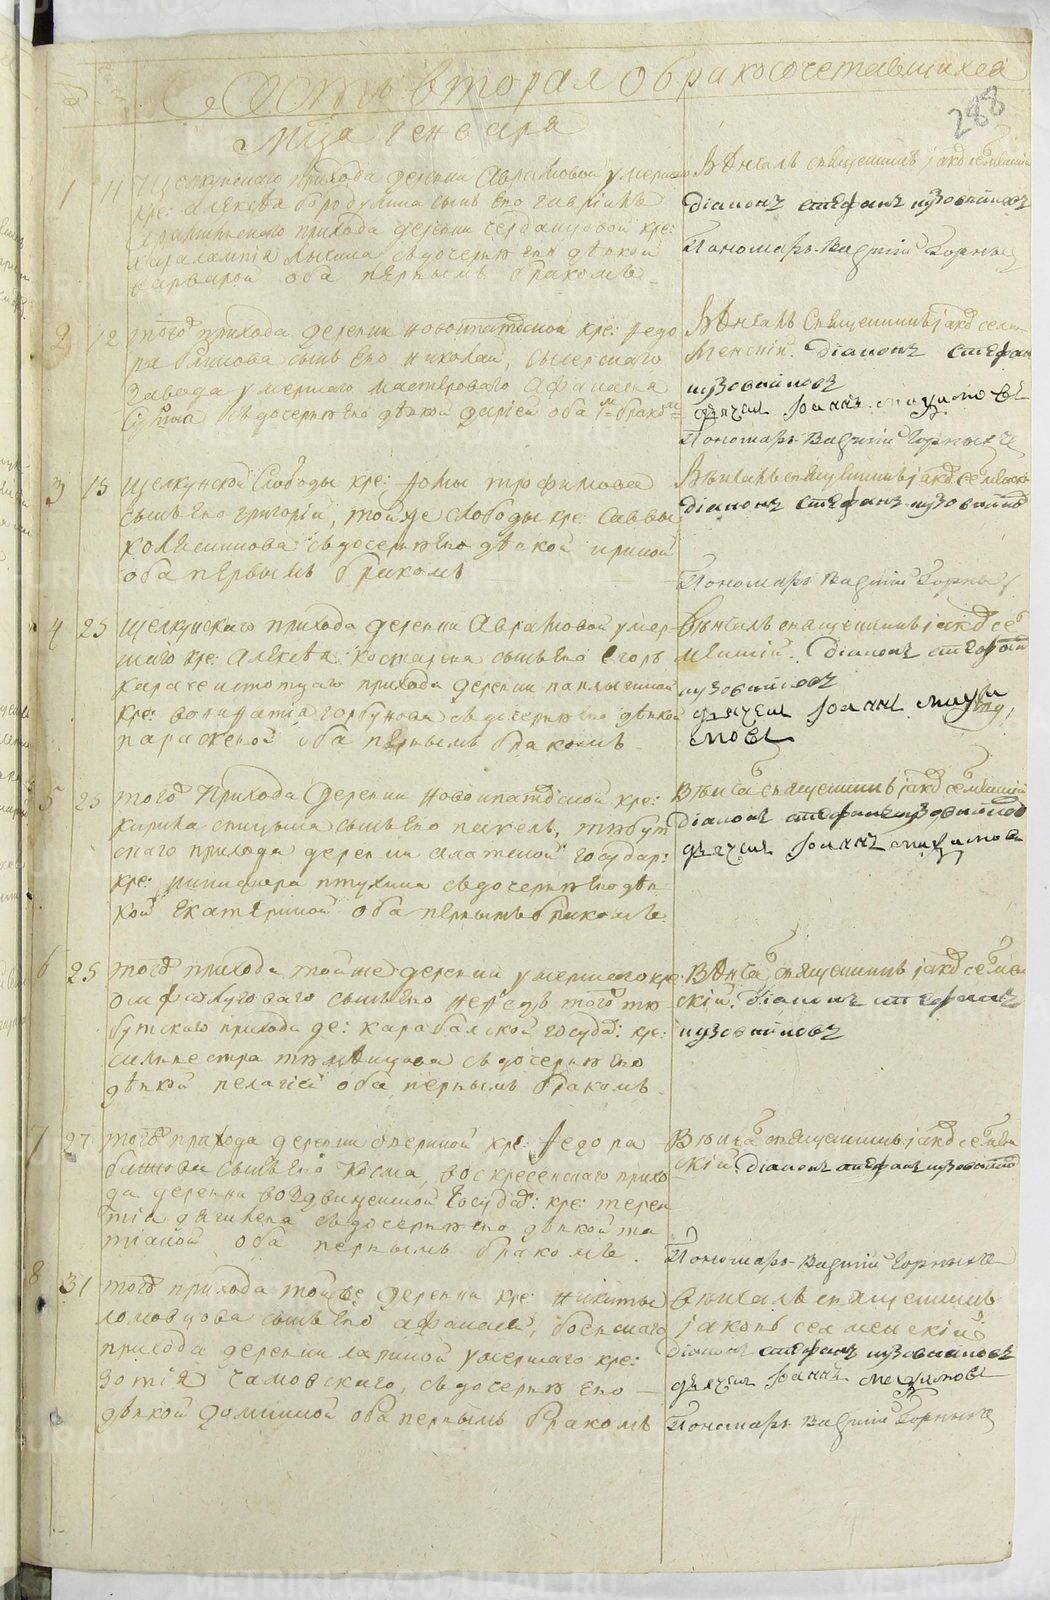 Часть вторая о бракосочетавшихся
288
Мца генваря
1 11 Щелкунскаго прихода деревни Аврамовой умершаго
кре: алексея бородулина сынъ его гавріилъ
прихода деревни кре:
харалампія лысина съ дочерью его дѣвкой
варварой оба первымъ бракомъ
Вѣнчалъ священникъ іаковъ селменскій
діаконъ стефанъ пузовиковъ
Пономарь Василій Горныхъ
2 12 того прихода деревни новоипатовской кре: федо
ра блинова сынъ его николай, сысерскаго
завода умершаго мастероваго афанасія
съ дочерью его дѣвкой дарьей оба 1 м бракомъ
Вѣнчалъ Священникъ іаковъ селм
менскій. діаконъ стефан
пузовиковъ
дьячекъ Іоаннъ
Пономарь Василій Горныхъ
3 15 Щелкунской Слободы кре: фомы трофимова
сынъ его григорій, той же слободы кре: Саввы
колясникова съ дочерью его дѣвкой ириной
оба первымъ бракомъ
Вѣнчалъ священникъ іаковъ селменскій
діаконъ стефанъ пузовиковъ
Пономарь Василій Горныхъ
4 25 Щелкунскаго прихода деревни Аврамовой умер-
шаго кре: алексея костарева сынъ его егоръ
прихода деревни
кре: горбунова съ дочерью его дѣвкой
параскевой оба первымъ бракомъ
Вѣнчалъ священникъ іаковъ сел
менскій. діаконъ стефанъ
пузовиковъ
дьячекъ Іоаннъ
5 25 того прихода деревни новоипатовской кре:
кирила спицына сынъ его павелъ, тюбук
скаго прихода деревни алатковой государ:
кре: никифора птухина съ дочерью его дѣв
кой екатериной оба первымъ бракомъ
Вѣнчалъ священникъ іаковъ селменскій
діаконъ стефанъ пузовиковъ
дьячекъ Іоаннъ
6 25 того прихода той же деревни умершаго кре.
сынъ его того тю
букскаго прихода де: карабалской государ: кре:
силвестра съ дочерью его
дѣвкой пелагіей оба первымъ бракомъ
Вѣнчалъ священникъ іаковъ селмен
скій. діаконъ стефанъ
пузовиковъ
7 27 того прихода деревни кре: федора
сынъ его косма, воскресенскаго прихо
да деревни воздвиженской государ: кре: терен
тія с дочерью его дѣвкой та
тіаной оба первымъ бракомъ.
Вѣнчалъ священникъ іаковъ селмен
скій. діаконъ стефанъ пузовиковъ
Пономарь Василій Горныхъ
8 31 того прихода той же деревни кре: никиты
ломовцова сынъ его афанасій, боевскаго
прихода деревни лариной умершаго кре:
зотія чамовскаго, съ дочерью его
дѣвкой домникой оба первымъ бракомъ
Вѣнчалъ священникъ
іаковъ селменскій
діаконъ стефанъ пузовиковъ
дьячекъ Іоаннъ
Пономарь Василій Горныхъ
METRIKI.GASO-URAL.RU